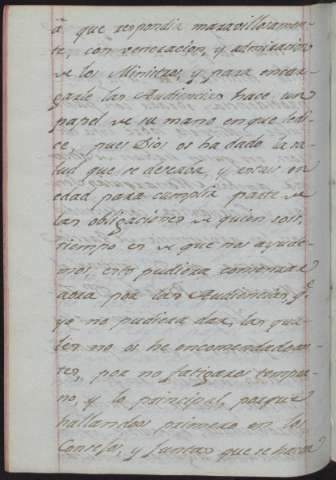 â que respondia maravillosamen-
te, con veneracion, y admiracion
de los Ministros, y para encar-
garle las Audiencias hace un
papel de su mano en que le di-
ce, pues Dios os ha dado la sa-
lud que se deseaba, y estais en
edad para cumplir parte de
las obligaciones de quien sois,
tiempo es de que nos ayude-
mos, esto pudiera comenzar
aora por las Audiencias q.e
yo no pudiera dar, las qua-
les no os he encomendado an-
tes, por no fatigaros tempra-
no, y lo principal, porque
hallandoos primero en los
Consejos, y Juntas que se hacen